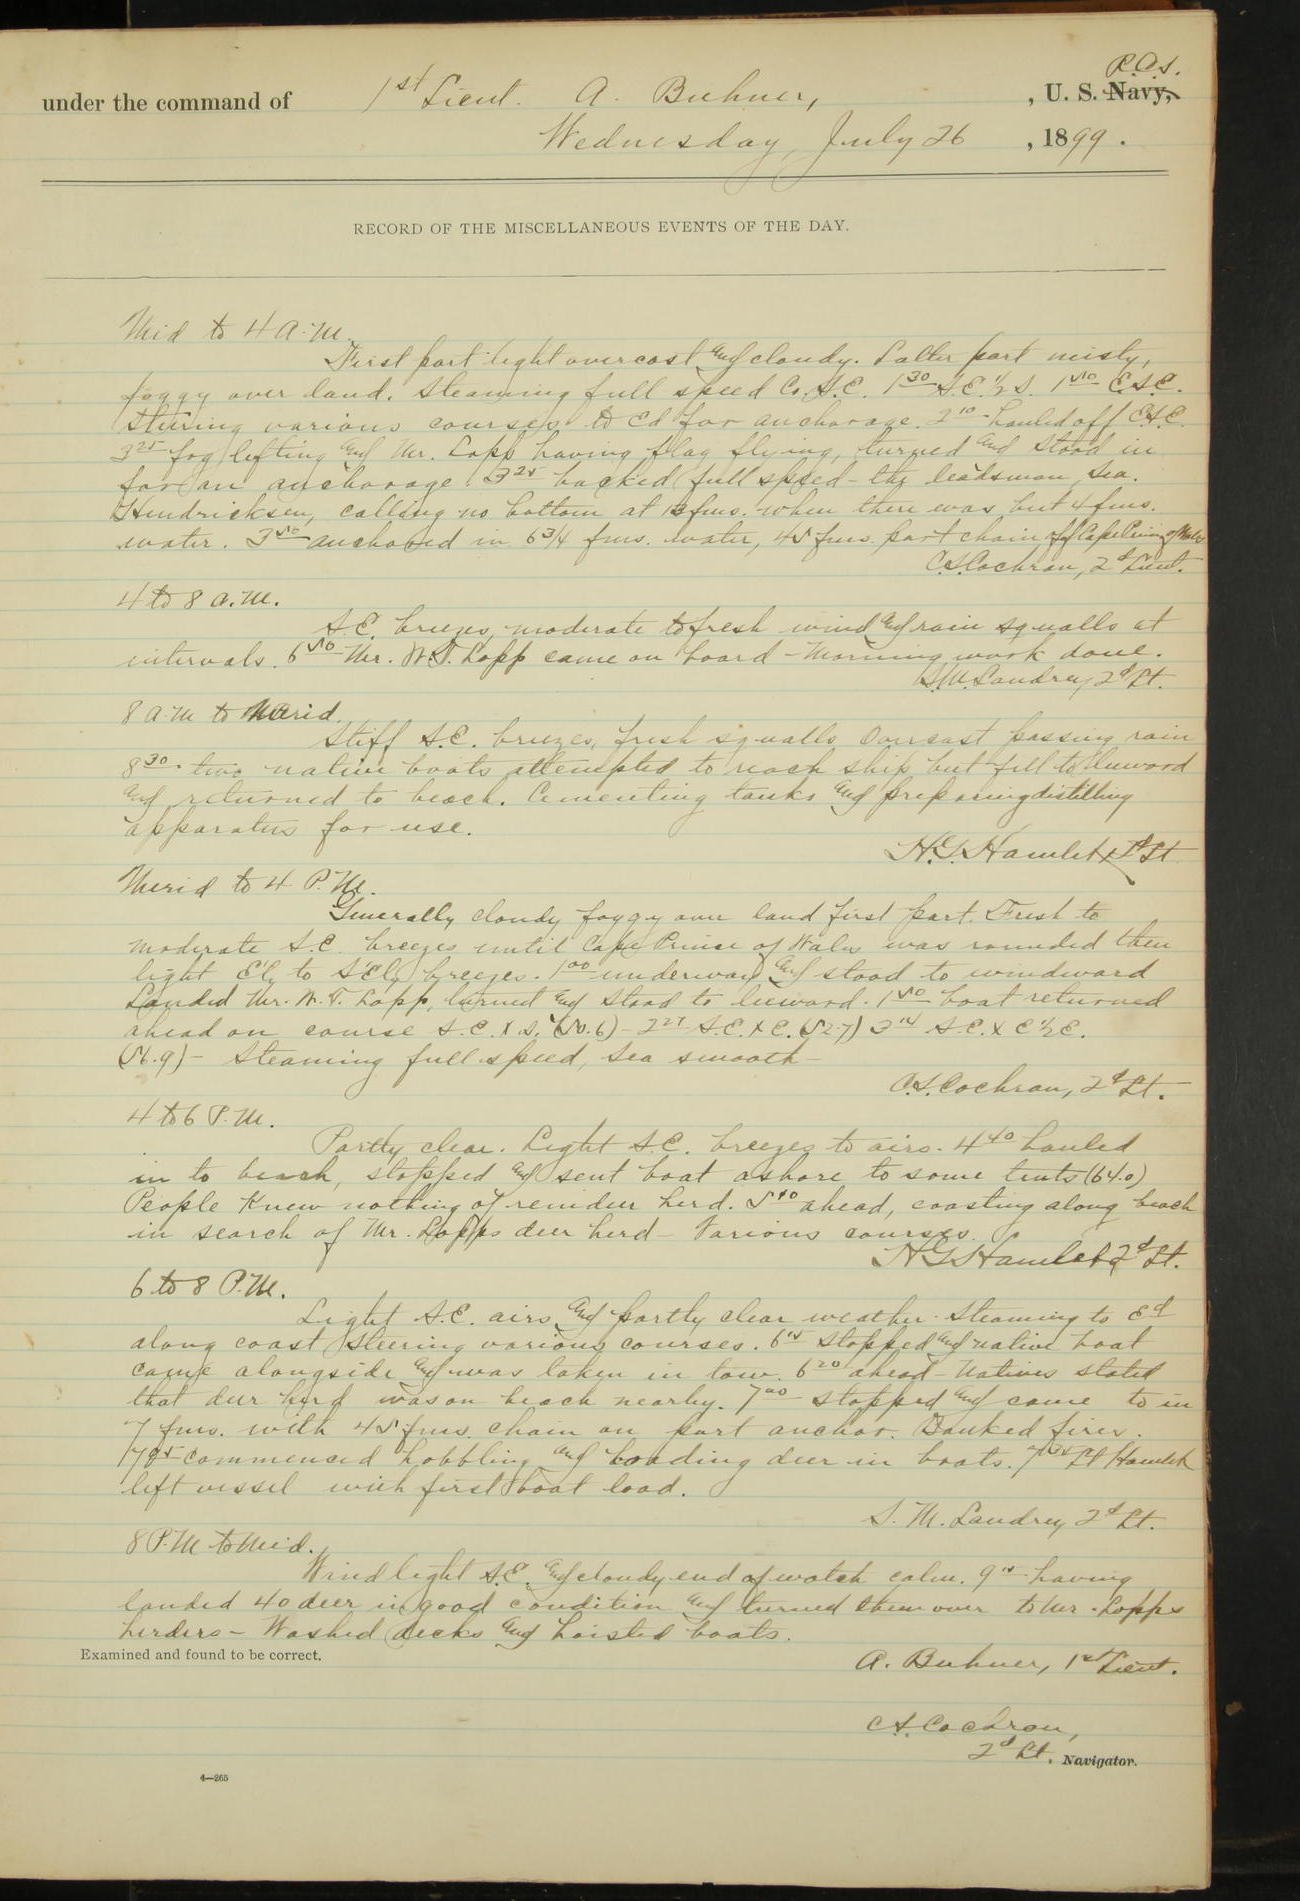 R.C.S.
under the command of 1st Lieut. A. Buhner, , U. S. Navy,
Wednesday, July 26 , 1899.
RECORD OF THE MISCELLANEOUS EVENTS OF THE DAY.
Mid to 4 A.M.
First part light overcast and cloudy. Latter part misty,
foggy over land. Steaming full speed Co. S.E. 1 30 S.E. 1/2 S. 1 50 E.S.E.
Steering various courses to Ed for anchorage. 2 10 hauled off E.S.E.
3 25 fog lifting and Mr. Lopp having flag flying, turned and stood in
for an anchorage. 3 25 backed full speed - the leadsman, Sea.
Hendricksen, calling no bottom at 13 fms. when there was but 4 fms.
water. 3 50 anchored in 6 3/4 fms. water, 45 fms. port chain off Cape Prince of Wales
C.S. Cochran, 2d Lieut.
4 to 8 A.M.
S.E. breezes, moderate to fresh wind and rain squalls at
intervals. 6 50 Mr. W.T. Lopp came on board - Morning work done.
S.M. Landrey, 2d Lt.
8 A.M to Merid.
Stiff S.E. breezes, fresh squalls Overcast passing rain
8 30 two native boats attempted to reach ship but fell to leeward
and returned to beach. Cementing tanks and preparing distilling
apparatus for use.
H.G. Hamlet, 2d Lt
Merid to 4 P.M.
Generally cloudy foggy over land first part. Fresh to
moderate S.E. breezes until Cape Prince of Wales was rounded then
light E'ly to S'Ely breezes. 1 00 underway and stood to windward
Landed Mr. W.T. Lopp, turned and stood to leeward. 1 50 boat returned
ahead on course S.E. x S. (50.6) - 2 27 S.E. x E. (52.7) 3 14 S.E. x E 1/2 E.
(56.9) - Steaming full speed, Sea smooth -
C.S. Cochran, 2d Lt.
4 to 6 P.M.
Partly clear. Light S.E. breezes to airs. 4 40 hauled
in to beach, stopped and sent boat ashore to some tents (64.0)
People Knew nothing of reindeer herd. 5 10 ahead, coasting along beach
in search of Mr. Lopps deer herd - Various courses.
H G Hamlet, 2d Lt.
6 to 8 P.M.
Light S.E. airs and partly clear weather. Steaming to Ed
along coast steering various courses. 6 15 stopped and native boat
came alongside and was taken in tow. 6 20 ahead - Natives stated
that deer herd was on beach nearby. 7 00 stopped and came to in
7 fms. with 45 fms. chain on port anchor. Banked fires.
commenced hobbling and loading deer in boats. Lt Hamlet
left vessel with first boat load.
S. M. Landrey 2d Lt.
8 P.M to Mid.
Wind light S.E. and cloudy end of watch calm. 9 15 having
landed 40 deer in good condition and turned them over to Mr. Lopps
herders - Washed decks and hoisted boats.
Examined and found to be correct.
A. Buhner, 1st Lieut.
C.S. Cochran,
2d Lt. Navigator.
4—265